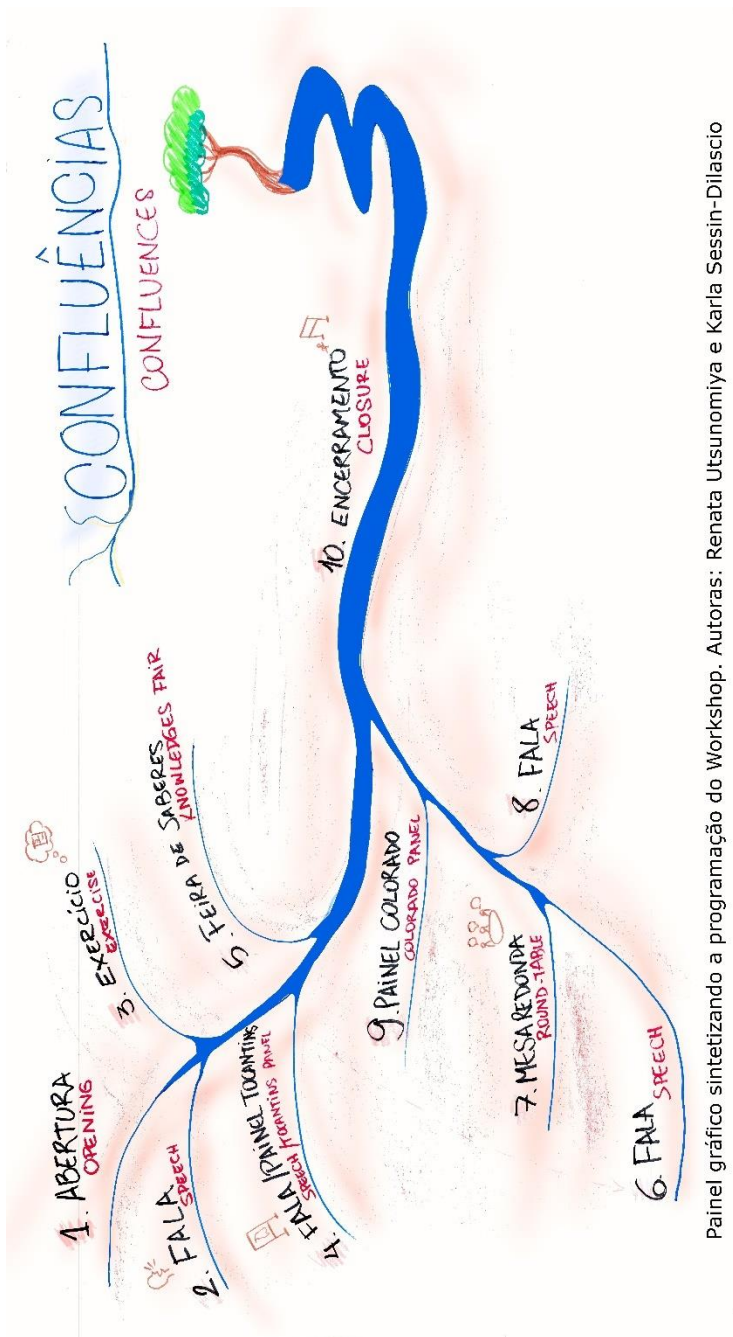 CONFLUÊNCIAS
CONFLUENCES
1. ABERTURA
OPENING
2. FALA
SPEECH
3. EXERCÍCIO
EXERCISE
4. FALA/PAINEL TOCANTINS
SPEECH/TOCANTINS PANEL
5. FEIRA DE SABERES
KNOWLEDGES FAIR
6. FALA
SPEECH
7. MESA REDONDA
ROUND-TABLE
8. FALA
SPEECH
9. PAINEL COLORADO
COLORADO PANEL
10. ENCERRAMENTO
CLOSURE
Painel gráfico sintetizando a programação do Workshop. Autoras: Renata Utsunomiya e Karla Sessin-Dilascio